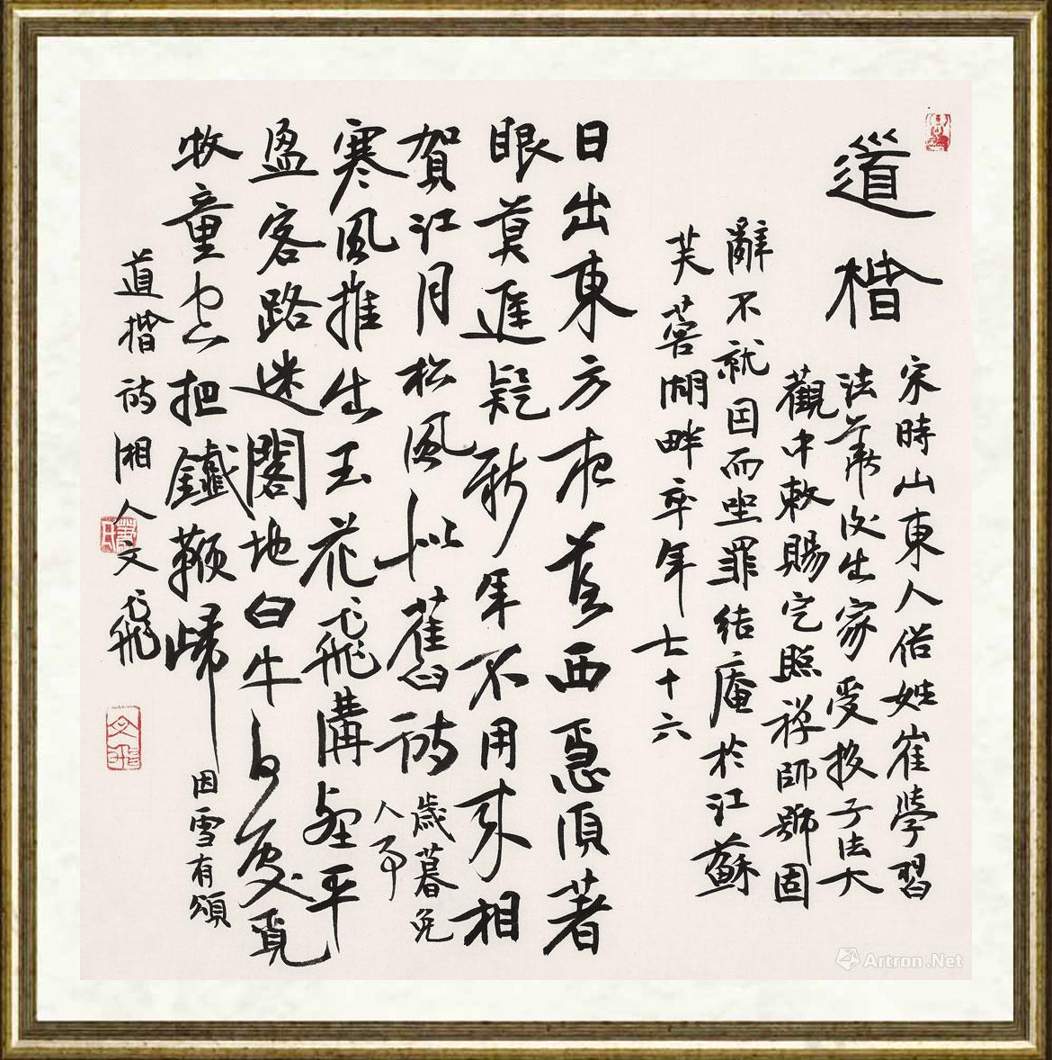 道楷
宋時山東人俗姓崔學習
法華後出家受投子法大
觀中敕賜定照禪師號固
辭不就因而坐罪結庵於江蘇
芙蓉湖畔卒年七十六
日出東方夜落西急須著
眼莫遲疑新年不用來相
賀江月松風似舊詩 歲暮免
人事
寒風推出玉花飛溝壑平
盈客路迷閣地白牛何處覓
牧童空把鐵鞭歸 因雪有頌
道楷詩湘人文飛
文飛
Artron.Net